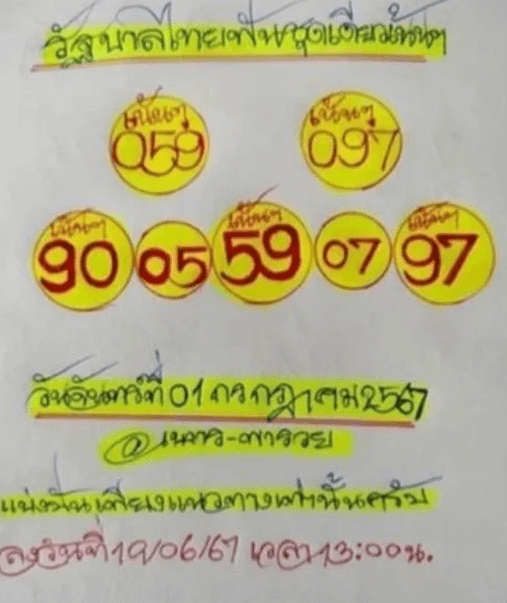 รัฐบาลไทยฟันชุดเดียวเน้นๆ
เน้นๆ เน้นๆ
059 097
เน้นๆ เน้นๆ เน้นๆ
90 05 59 07 97
วันจันทร์ที่ 01 กรกฎาคม 2567
แบ่งปันเพียงแนวทางเท่านั้นครับ
ลงวันที่ 19/06/67 เวลา 13:00น.